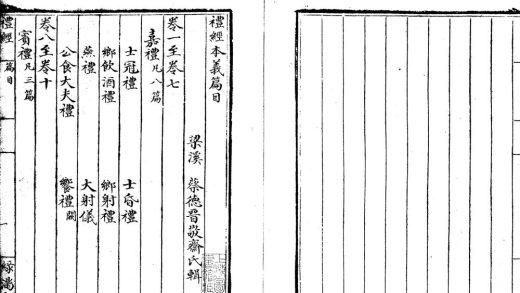 禮經本義篇目
梁溪 蔡德晋敬齋氏輯
卷一至卷七
嘉禮凡八篇
士冠禮 士昏禮
鄉飲酒禮 鄉射禮
燕禮 大射儀
公食大夫禮 饗禮闕
卷八至卷十
賓禮凡三篇
禮經 篇目